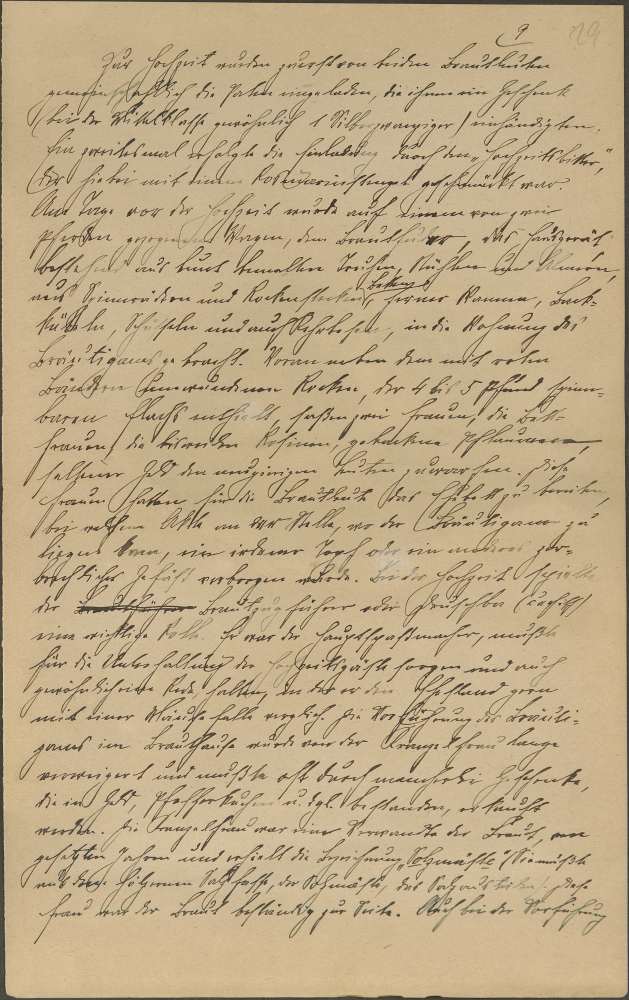 9
29
Zur Hochzeit wurden zuerst von beiden Brautleuten
gemeinschaftlich die Paten eingeladen, die ihnen ein Geschenk
(bei der Mittelklasse gewöhnlich 1 Silberzwanziger) einhändigten.
Ein zweitesmal erfolgte die Einladung durch den "Hochzeitsbitter",
der hiebei mit einem Rosmarinstengel geschmückt war.
Am Tage vor der Hochzeit wurde auf einem von zwei
Pferden gezogenen Wagen, dem Brautfuder, das Hausgerät
bestehend aus bunt bemalten Truhen, Stühlen und
aus Spinnrädern und Rockenstecken, Betten, ferner Wanne, Back-
kübeln, Schüsseln und auch Kehrbesen, in die Wohnung des
Bräutigams gebracht. Voran neben dem mit roten
Bändern umwundenen Rocken, der 4 bis 5 Pfund spinn-
baren Flachs enthielt, saßen zwei Frauen, die Bett-
frauen, die bisweilen Rosinen, gebackene Pflaumen,
seltener Geld den neugierigen Leuten zuwarfen. Diese
Frauen hatten für die Brautleute das Ehebett zu bereiten,
bei welchem Akte an der Stelle, wo der Bräutigam zu
liegen kam, ein irdener Topf oder ein anderes zer-
brechliches Gefäß verborgen wurde. Bei der Hochzeit spielte
der Brautführer Brautzugführer oder Druschba
eine wichtige Rolle. Er war der Hauptspaßmacher, mußte
für die Unterhaltung der Hochzeitsgäste sorgen und auch
gewöhnlich eine Rede halten, in der er den Ehestand gern
mit einer Mäusefalle verglich. Die Vorführung des Bräuti-
gams im Brauthause wurde von der Kranzelfrau lange
verweigert und mußte oft durch mancherlei Geschenke,
die in Geld, Pfefferkuchen u. dgl. bestanden, erkauft
werden. Die Kranzelfrau war eine Verwandte der Braut, von
gesetzten Jahren und erhielt die Bezeichnung "Salzmäste" (Sie mußte
aus dem hölzernen Salzfasse, der Salzmäste, das Salz austeilen). Diese
Frau war der Braut beständig zur Seite. Auch bei der Vorführung